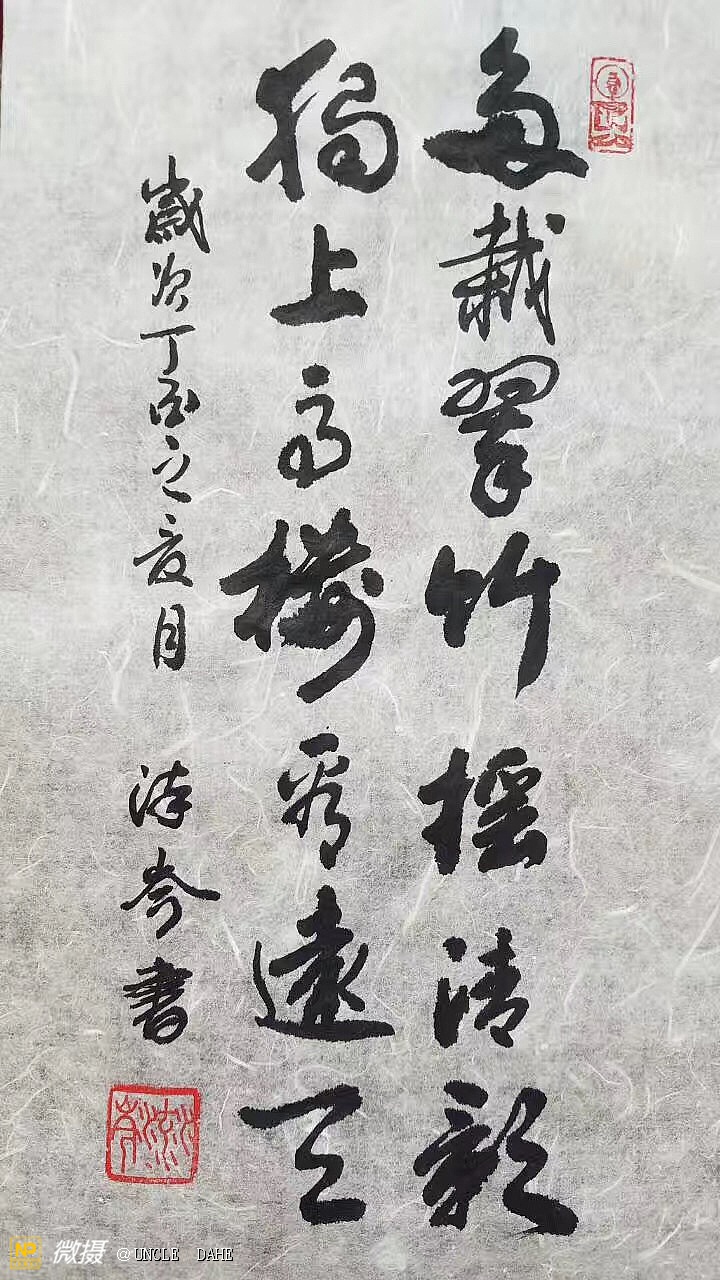 多栽翠竹摇清影
獨上高樓看遠天
歲次丁酉之夏月 書
微摄 @UNCLE DAHE